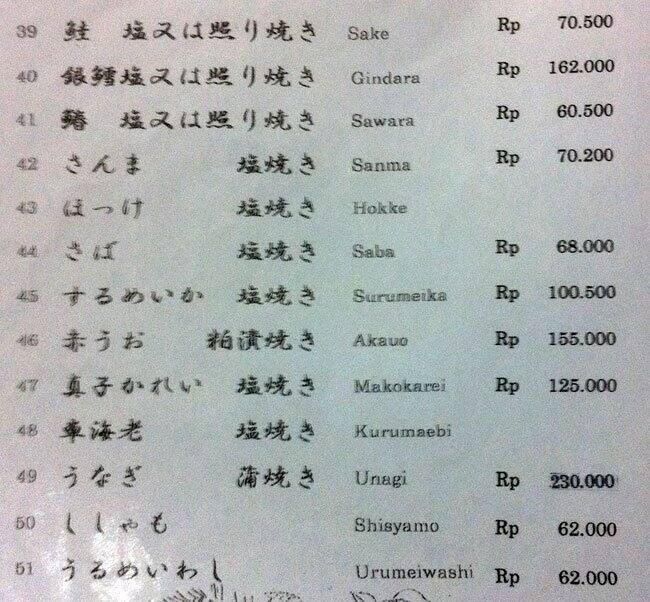 39 鮭 塩又は照り焼き Sake Rp 70.500
40 銀鱈塩又は照り焼き Gindara Rp 162.000
41 鰆 塩又は照り焼き Sawara Rp 60.500
42 さんま 塩焼き Sanma Rp 70.200
43 ほっけ 塩焼き Hokke
44 さば 塩焼き Saba Rp 68.000
45 するめいか 塩焼き Surumeika Rp 100.500
46 赤うお 粕漬焼き Akauo Rp 155.000
47 真子かれい 塩焼き Makokarei Rp 125.000
48 車海老 塩焼き Kurumaebi
49 うなぎ 蒲焼き Unagi Rp 230.000
50 ししゃも Shisyamo Rp 62.000
51 うるめいわし Urumeiwashi Rp 62.000